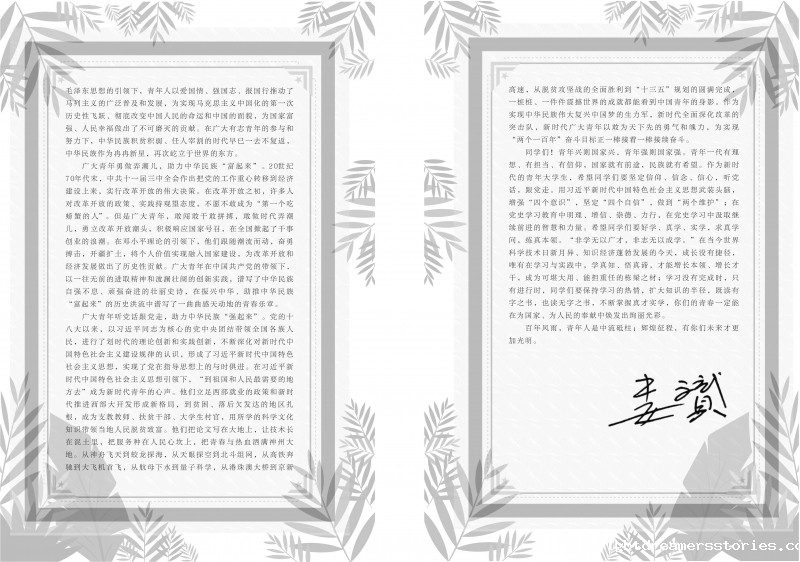 毛泽东思想的引领下，青年人以爱国情、强国志、报国行推动了
马列主义的广泛普及和发展，为实现马克思主义中国化的第一次
历史性飞跃、彻底改变中国人民的命运和中国的面貌，为国家富
强、人民幸福做出了不可磨灭的贡献。在广大有志青年的参与和
努力下，中华民族积贫积弱、任人宰割的时代早已一去不复返，
中华民族作为冉冉新星，再次屹立于世界的东方。
广大青年勇做弄潮儿，助力中华民族“富起来”。20世纪
70年代末，中共十一届三中全会作出把党的工作重心转移到经济
建设上来，实行改革开放的伟大决策。在改革开放之初，许多人
对改革开放的政策、实践持观望态度，不愿不敢成为“第一个吃
螃蟹的人”。但是广大青年，敢闯敢干敢拼搏，敢做时代弄潮
儿，勇立改革开放潮头，积极响应国家号召，在全国掀起了干事
创业的浪潮。在邓小平理论的引领下，他们跟随潮流而动，奋勇
搏击，开疆扩土，将个人价值实现融入国家建设，为改革开放和
经济发展做出了历史性贡献。广大青年在中国共产党的带领下，
以一往无前的进取精神和波澜壮阔的创新实践，谱写了中华民族
自强不息、顽强奋进的壮丽史诗，在振兴中华、助推中华民族
“富起来”的历史洪流中谱写了一曲曲感天动地的青春乐章。
广大青年听党话跟党走，助力中华民族“强起来”。党的十
八大以来，以习近平同志为核心的党中央团结带领全国各族人
民，进行了划时代的理论创新和实践创新，不断深化对新时代中
国特色社会主义建设规律的认识，形成了习近平新时代中国特色
社会主义思想，实现了党在指导思想上的与时俱进。在习近平新
时代中国特色社会主义思想引领下，“到祖国和人民最需要的地
方去”成为新时代青年的心声。他们立足西部就业的政策和新时
代推进西部大开发形成新格局，到贫困、落后欠发达的地区扎
根，成为支教教师、扶贫干部、大学生村官，用所学的科学文化
知识带领当地人民脱贫致富。他们把论文写在大地上，让技术长
在泥土里，把服务种在人民心坎上，把青春与热血洒满神州大
地。从神舟飞天到蛟龙探海，从天眼探空到北斗组网，从高铁奔
驰到大飞机首飞，从航母下水到量子科学，从港珠澳大桥到京新
高速，从脱贫攻坚战的全面胜利到“十三五”规划的圆满完成，
一桩桩、一件件震撼世界的成就都能看到中国青年的身影。作为
实现中华民族伟大复兴中国梦的生力军，新时代全面深化改革的
突击队，新时代广大青年以敢为天下先的勇气和魄力，为实现
“两个一百年”奋斗目标正一棒接着一棒接续奋斗。
同学们！青年兴则国家兴，青年强则国家强。青年一代有理
想、有担当、有信仰，国家就有前途，民族就有希望。作为新时代
的青年大学生，希望同学们要坚定信仰、信念、信心，听党
话，跟党走。用习近平新时代中国特色社会主义思想武装头脑，
增强“四个意识”，坚定“四个自信”，做到“两个维护”；在
党史学习教育中明理、增信、崇德、力行，在党史学习中汲取继
续前进的智慧和力量。希望同学们要好学、真学、实学，求真学
问，练真本领。“非学无以广才，非志无以成学。”在当今世界
科学技术日新月异、知识经济蓬勃发展的今天，成长没有捷径，
唯有在学习与实践中，学真知、悟真谛，才能增长本领、增长才
干，成为可堪大用、能担重任的栋梁之材；学习没有完成时，只
有进行时，同学们要保持学习的热情，扩大知识的半径，既读有
字之书，也读无字之书，不断掌握真才实学，你们的青春一定能
在为国家、为人民的奉献中焕发出绚丽光彩。
百年风雨，青年人是中流砥柱；辉煌征程，有你们未来才更
加光明。
ghtdreamersstories.com